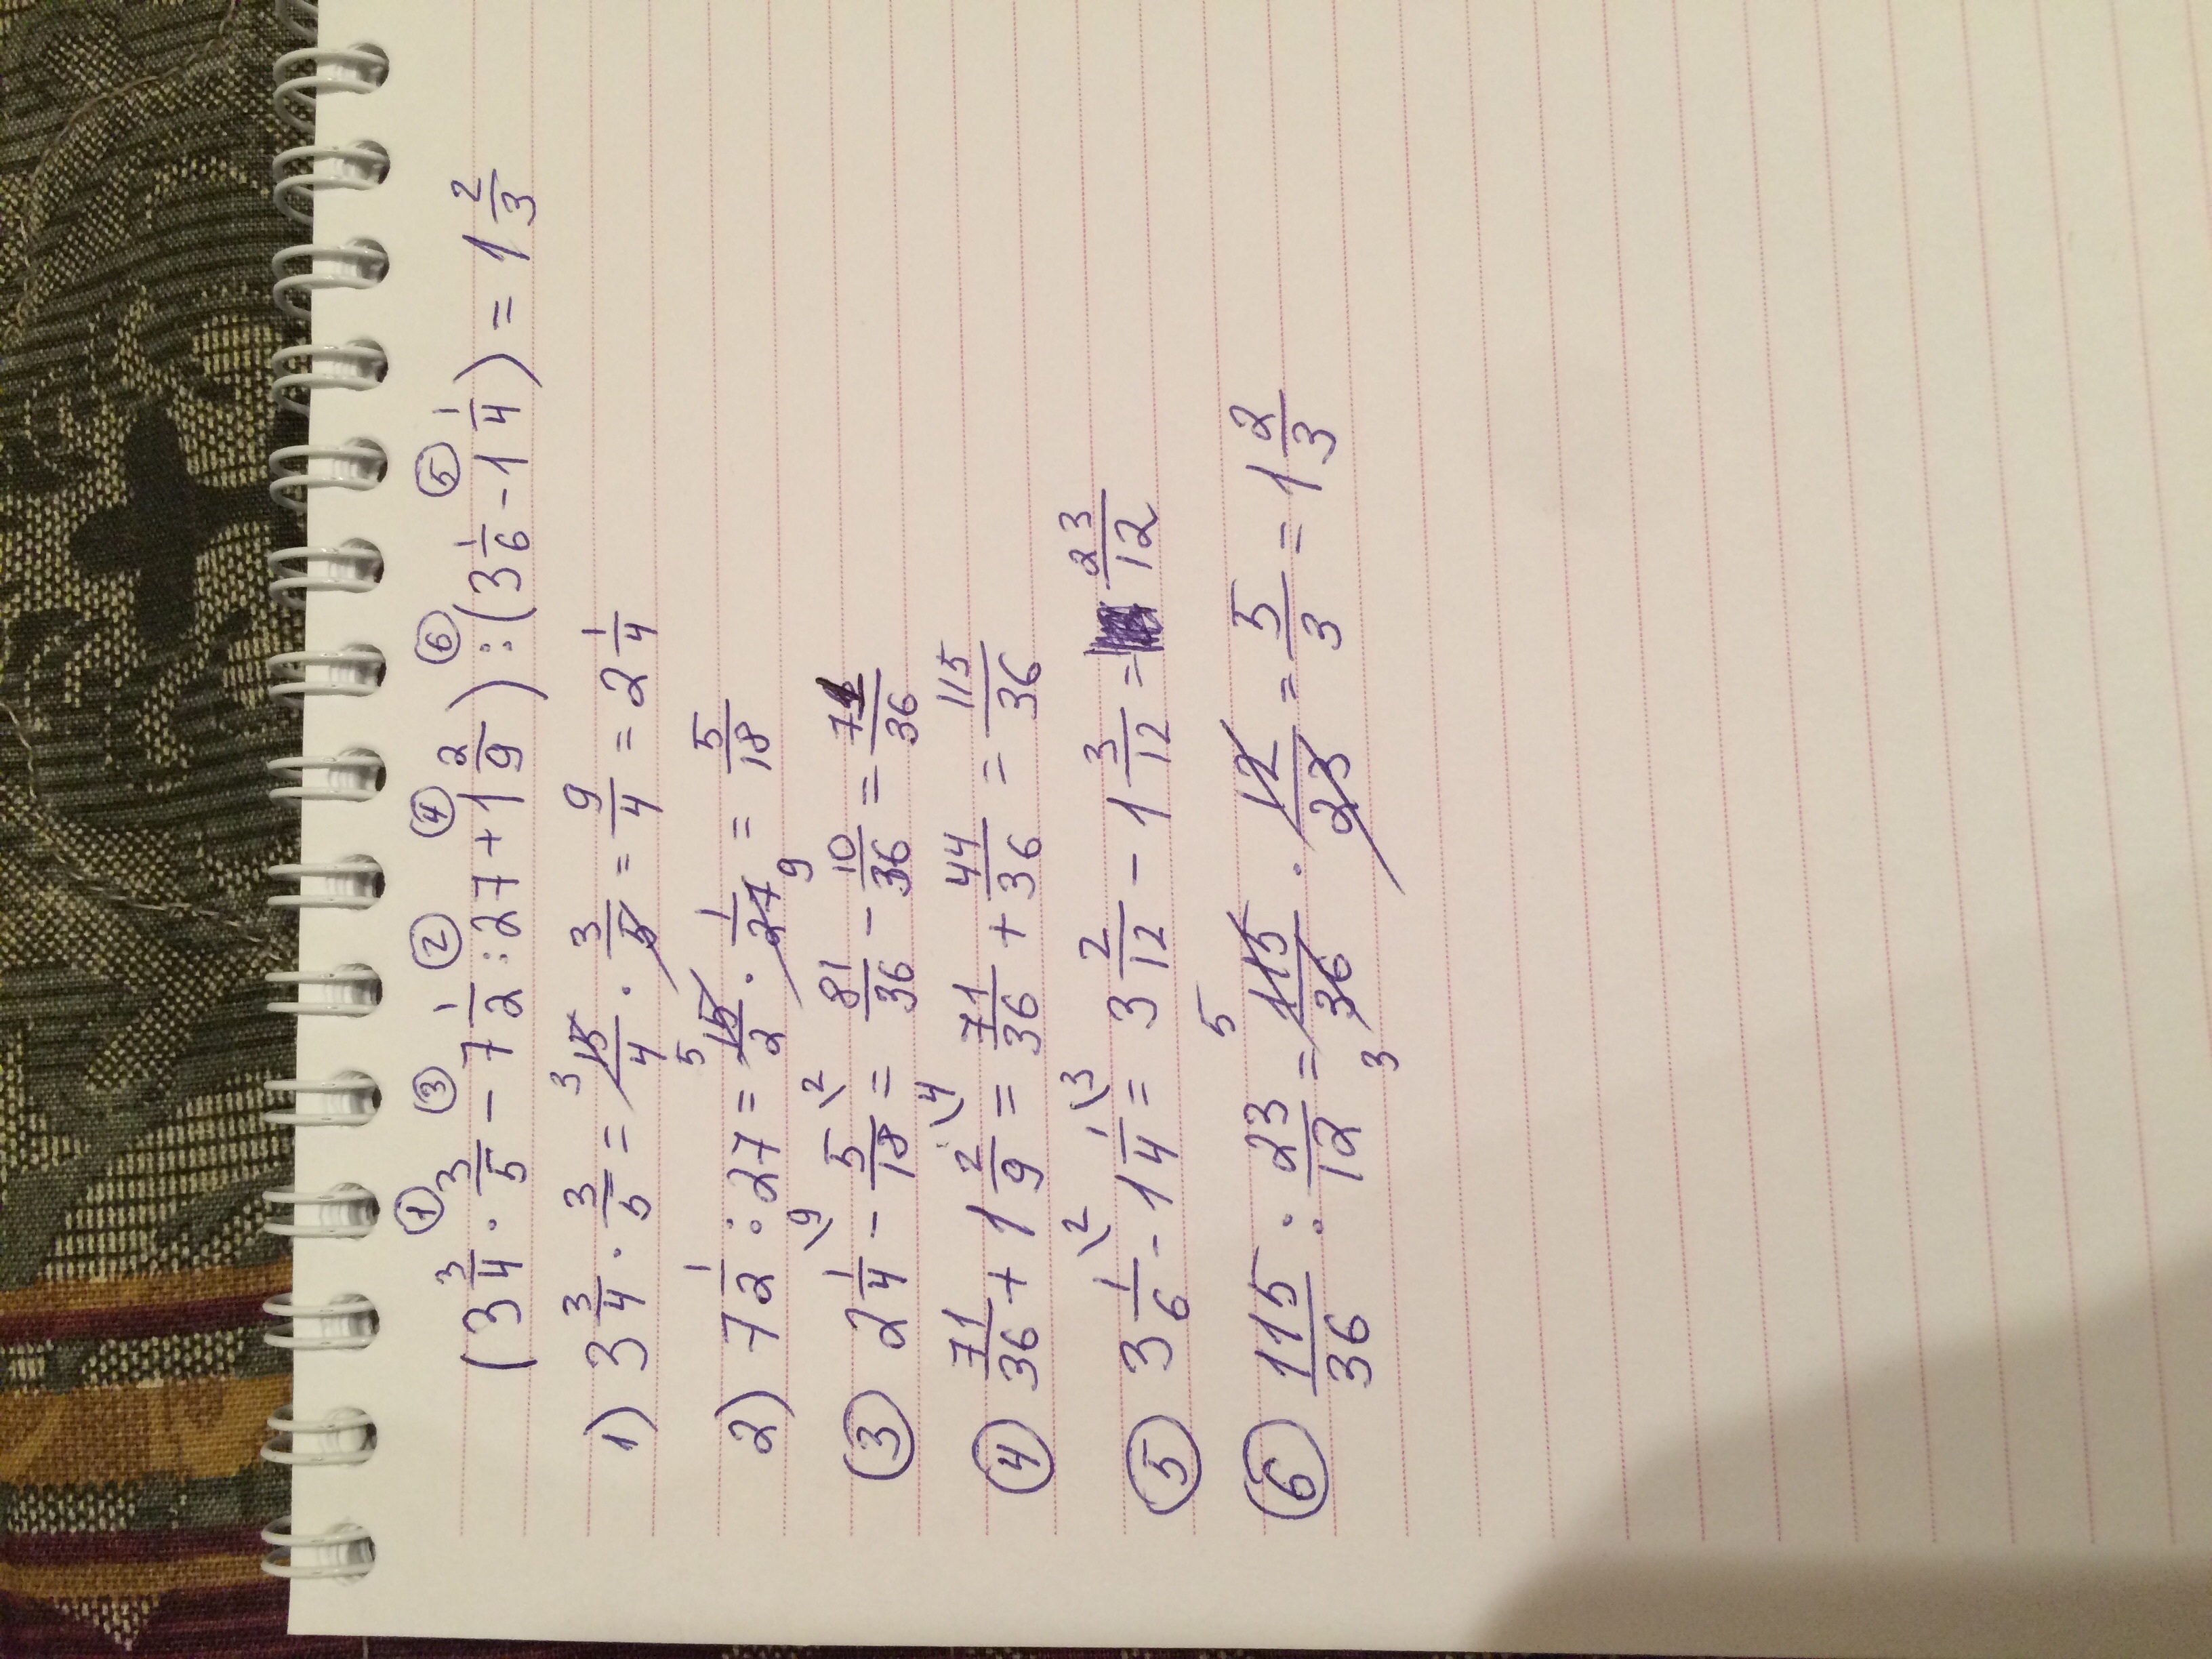 (3 3/4 · 3/5 - 7 1/2 : 27 + 1 2/9) : (3 1/6 - 1 1/4) = 1 2/3
1) 3 3/4 · 3/5 = 15/4 · 3/5 = 9/4 = 2 1/4
2) 7 1/2 : 27 = 15/2 · 1/27 = 5/18
3 2 1/4 \9 - 5/18 \2 = 81/36 - 10/36 = 71/36
4 71/36 + 1 2/9 \4 = 71/36 + 44/36 = 115/36
5 3 1/6 \2 - 1 1/4 \3 = 3 2/12 - 1 3/12 = 23/12
6 115/36 : 23/12 = 115/36 · 12/23 = 5/3 = 1 2/3